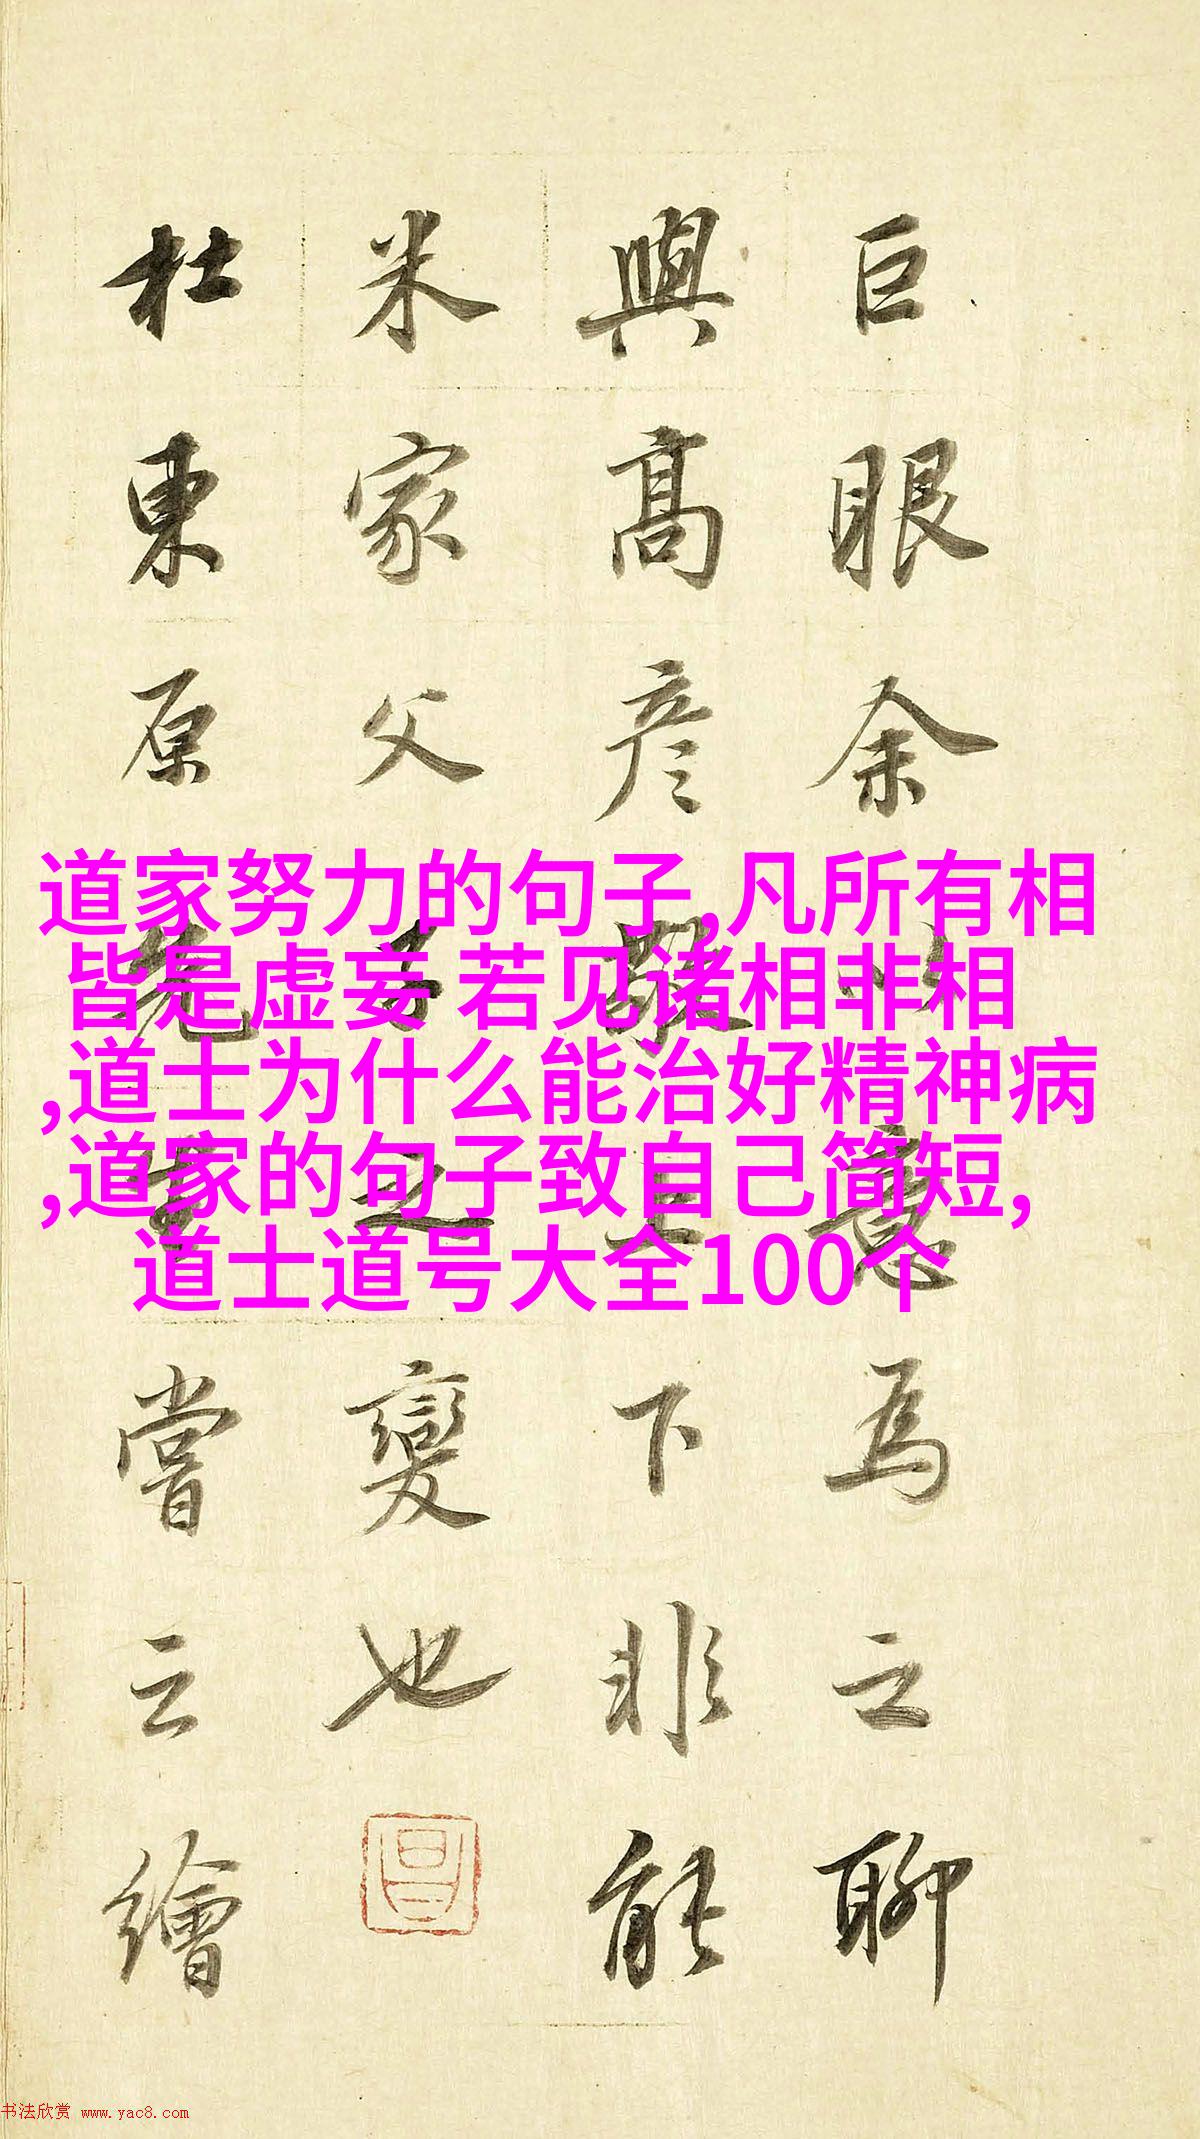 巨眼余以意為之聊
與高彦敬上下非能
米家父子之變也
杜東原先生嘗云繪
道家努力的句子,凡所有相
皆是虚妄 若见诸相非相
,道士为什么能治好精神病
,道家的句子致自己简短,
道士道号大全100个
书法欣赏 www.yac8.com